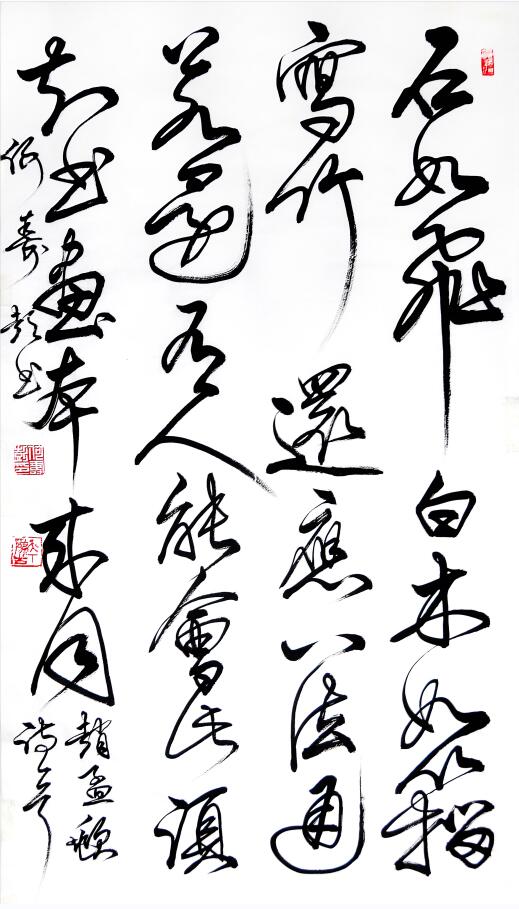 石如飛白木如籀
寫竹還應八法通
若還有人能會此須
知書畫本來同
趙孟頫
詩
壽彭書